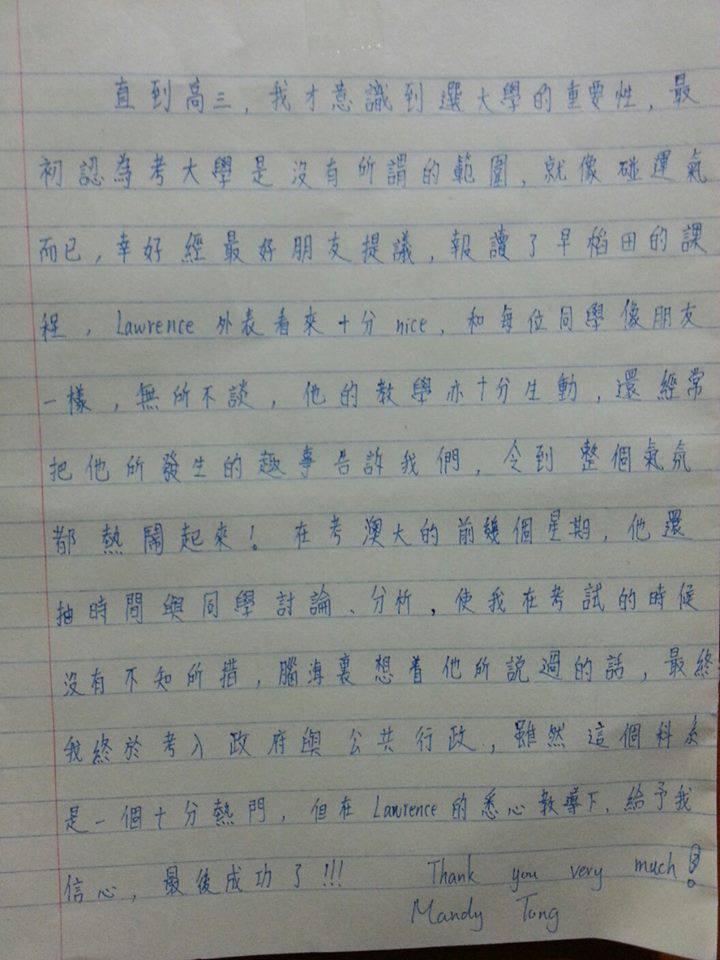 直到高三，我才意識到選大學的重要性，最
初認為考大學是沒有所謂的範圍，就像碰運氣
而已，幸好經最好朋友提議，報讀了早稻田的課
程，Lawrence 外表看來十分 nice，和每位同學像朋友
一樣，無所不談，他的教學亦十分生動，還經常
把他所發生的趣事告訴我們，令到整個氣氛
都熱鬧起來！在考澳大的前幾個星期，他還
抽時間與同學討論、分析，使我在考試的時候
沒有不知所措，腦海裏想着他所說過的話，最終
我終於考入政府與公共行政，雖然這個科系
是一個十分熱門，但在 Lawrence 的悉心教導下，給予我
信心，最後成功了!!! Thank you very much!
Mandy Tong